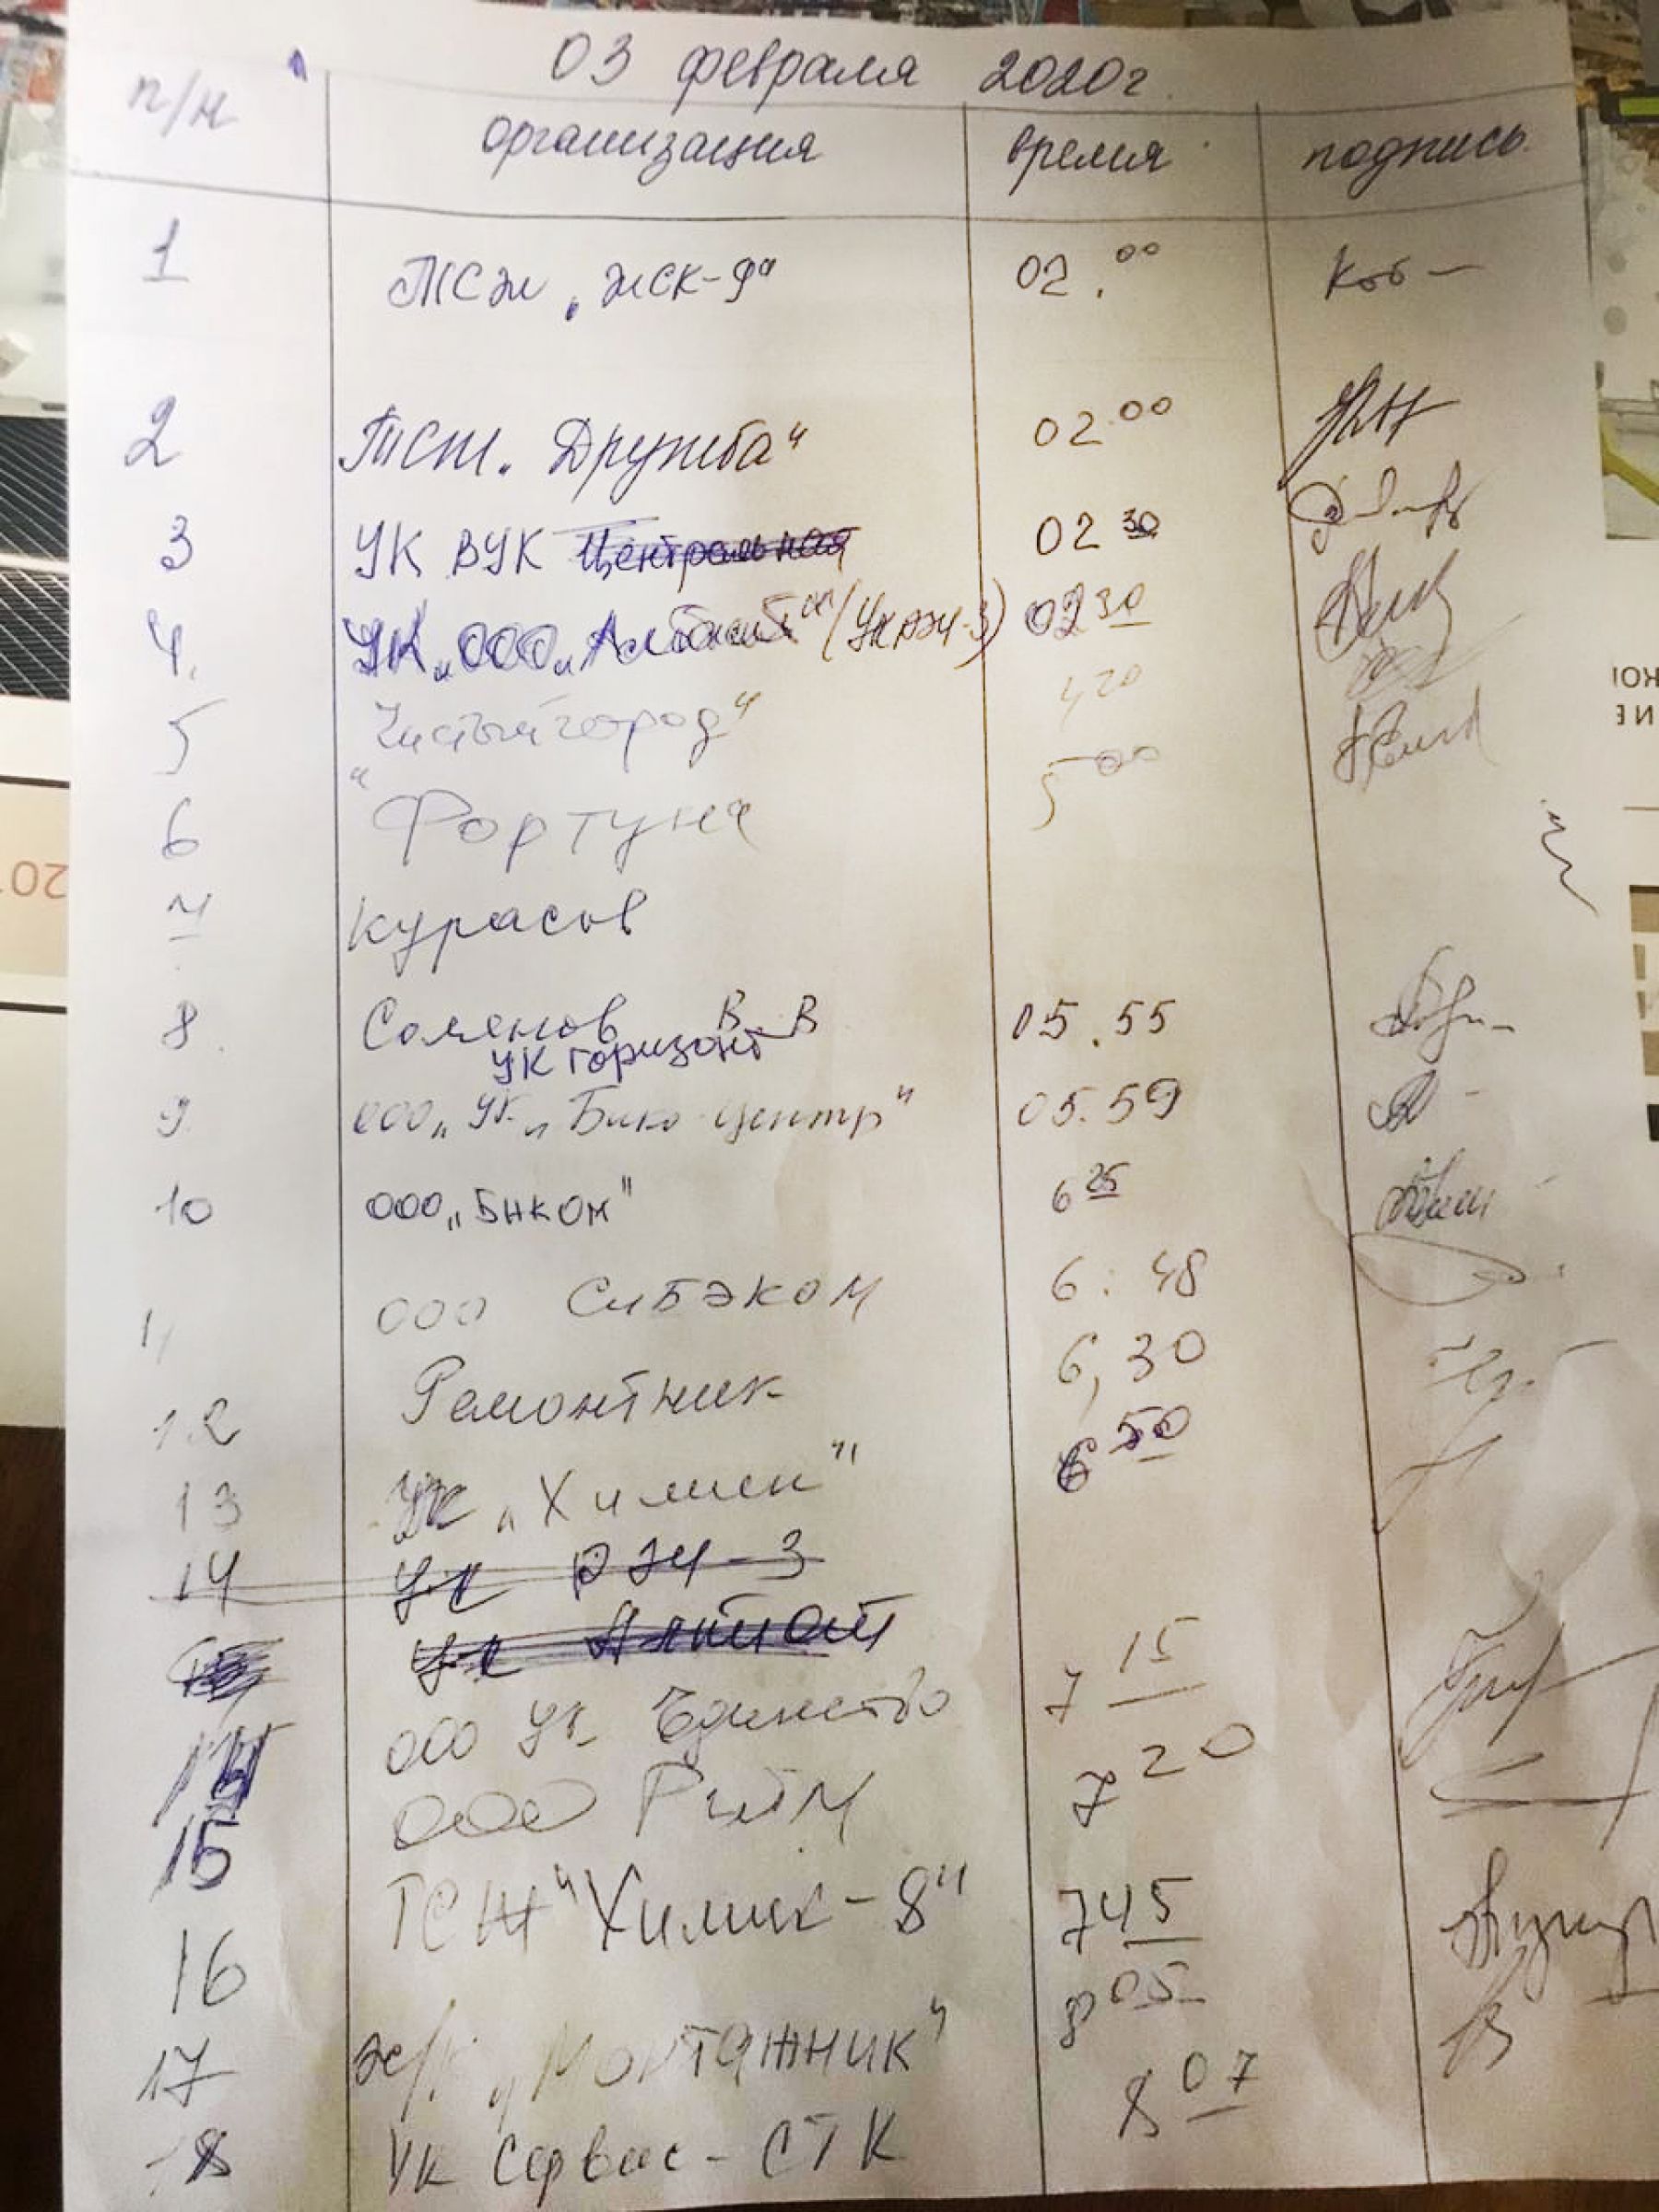 03 февраля 2020г.
п/н организация время подпись
1 ТСЖ „ЖСК-9" 02.00 Коб
2 ТСЖ „Дружба" 02.00
3 УК ВУК Центральная 02 30
4. УК „ООО „ (УК РЭУ-3) 02 30
5 Чистый город" 4 20
6 "Фортуна 5 00
7 Курасов
8. В. В 05.55
УК Горизонт
9. ООО „УК „ центр" 05.59
10 ООО „БНКОМ" 6 25
11 ООО СИБЭКОМ 6:48
12 Ремонтник 6,30
13 УК „Химик" 6 50
14 УК РЭУ-3
УК
14 ООО УК Единство 7 15
15 ООО РИТМ 7 20
16 ТСЖ "Химик-8" 7 45
17 ж/к „Монтажник" 8 05
18 УК Сервис-СТК 8 07